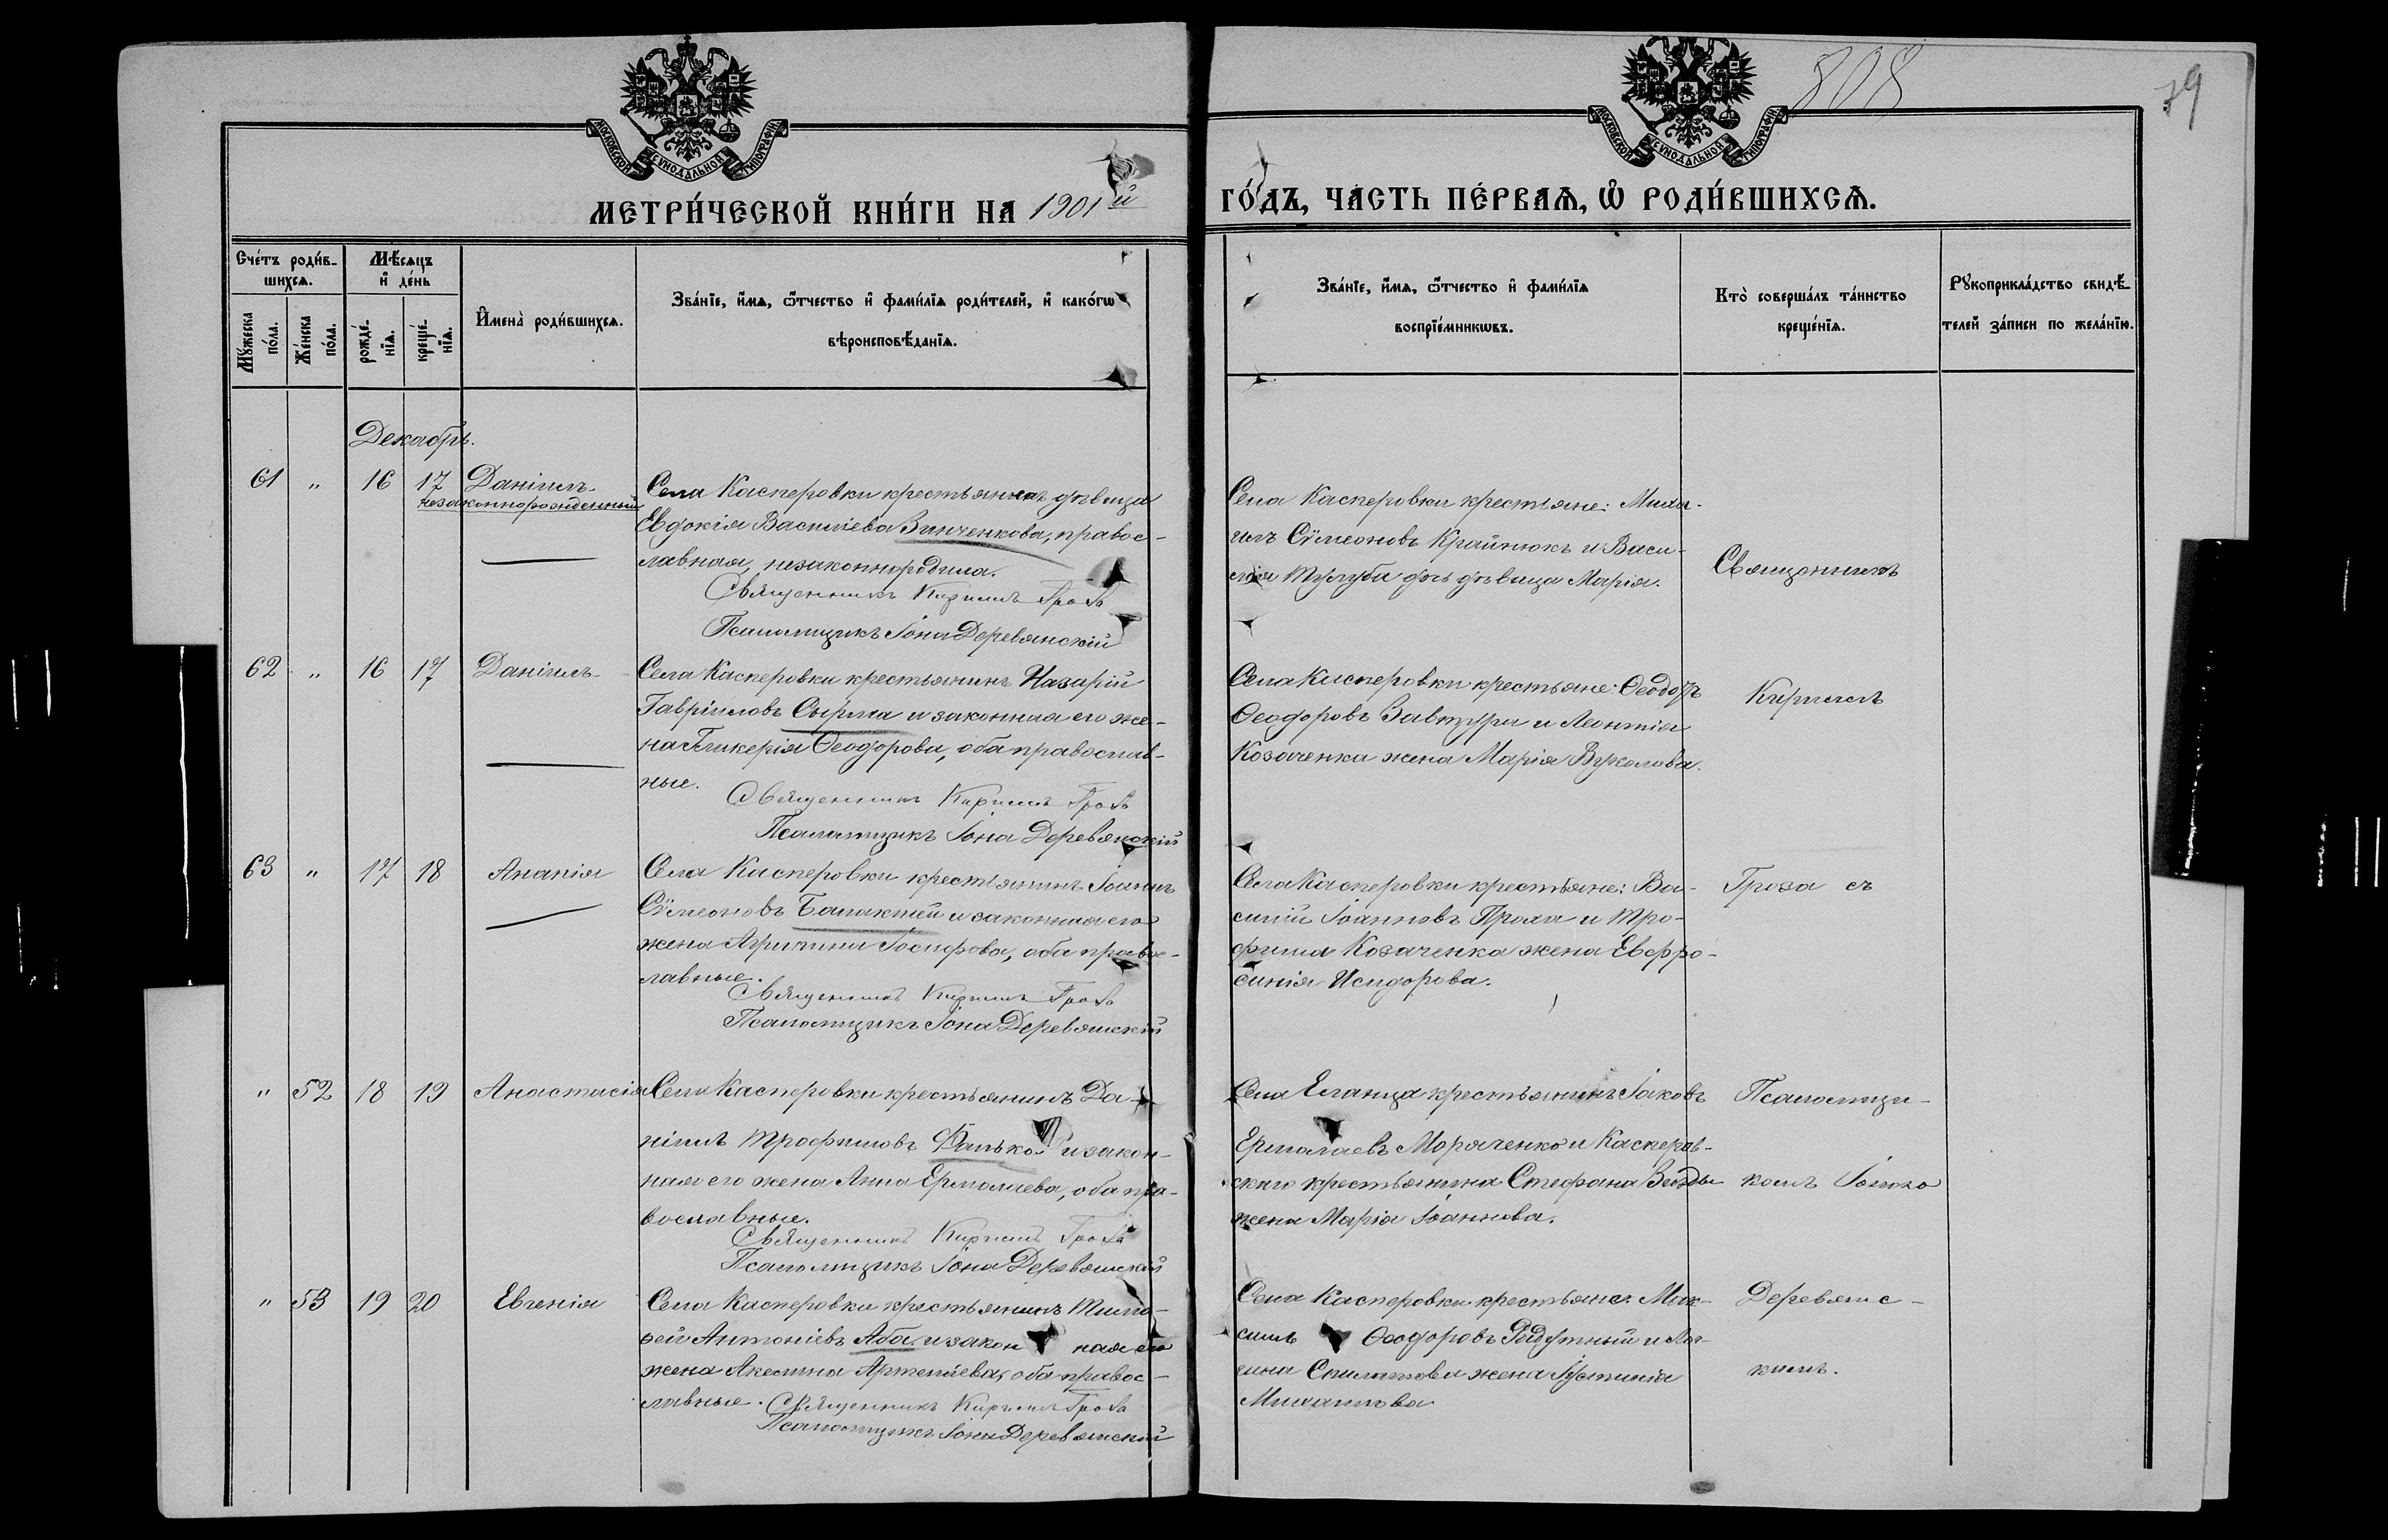 808
79
МОСКОВСКОЙ СѴНОДАЛЬНОЙ ТИПОГРАФІИ
МОСКОВСКОЙ СѴНОДАЛЬНОЙ ТИПОГРАФІИ
МЕТРИ́ЧЕСКОЙ КНИ́ГИ НА 1901й ГО́ДЪ, ЧА́СТЬ ПЕ́РВАѦ, Ѽ РОДИ́ВШИХСѦ.
Сче́тъ роди́в-
шихсѧ.
Мꙋ́жеска
по́ла.
Же́нска
по́ла.
Мѣ́сяцъ
и҆ де́нь
рожде́-
нїѧ.
креще́-
нїѧ.
И҆мена̀ роди́вшихсѧ.
Зва́нїе, и҆́мѧ, ѻ҆́тчество и҆ фами́лїѧ роди́телей, и҆ како́гѡ
вѣроисповѣ́данїѧ.
Зва́нїе, и҆́мѧ, ѻ҆́тчество и҆ фами́лїѧ
воспрїе́мникѡвъ.
Кто̀ соверша́лъ та́инство
креще́нїѧ.
Рꙋкоприкла́дство свидѣ́-
телей за́писи по жела́нїю.
Декабрь.
61 " 16 17 Даніилъ
незаконнорожденный
Села Касперовки крестьянка дѣвица
Евдокія Василіева Зинченкова, правос-
лавная, незаконнородила.
Священникъ Кириллъ Гроза
Псаломщикъ Іона Деревянскій
Села Касперовки крестьяне: Миха-
илъ Сѵмеоновъ Крайнюкъ и Васи-
лія дочь дѣвица Марія.
Священникъ
62 " 16 17 Даніилъ
Села Касперовки крестьянинъ Назарій
Гавріиловъ Сырма и законная его же-
на Гликерія Ѳеодорова, оба православ-
ные.
Священникъ Кириллъ Гроза
Псаломщикъ Іона Деревянскій
Села Касперовки крестьяне: Ѳеодоръ
Ѳеодоровъ Завтура и Леонтія
Козаченка жена Марія Вуколова.
Кириллъ
63 " 17 18 Ананія
Села Касперовки крестьянинъ Іоаннъ
Сѵмеоновъ Балактей и законная его
жена Агрипина Іосифова, оба правос-
лавные.
Священникъ Кириллъ Гроза
Псаломщикъ Іона Деревянскій
Села Касперовки крестьяне: Ва-
силій Іоанновъ и Тро-
фима Козаченка жена Евфро-
синія Исидорова.
Гроза съ
" 52 18 19 Анастасія
Села Касперовки крестьянинъ Да-
ніилъ Трофимовъ Фалько и закон-
ная его жена Анна Ермолаева, оба пра-
вославные.
Священникъ Кириллъ Гроза
Псаломщикъ Іона Деревянскій
Села Еланца крестьянинъ Іаковъ
Ермолаевъ Моряченко и Касперов-
скаго крестьянина Стефана
жена Марія Іоаннова.
Псаломщи-
комъ Іоною
" 53 19 20 Евгенія
Села Касперовки крестьянинъ Тимо-
ѳей Антоніевъ Аба и закон ная его
жена Акелина Артеміева, оба правос-
лавные.
Священникъ Кириллъ Гроза
Псаломщикъ Іона Деревянскій
Села Касперовки крестьяне: Мак-
симъ Ѳеодоровъ Радутный и
жена Іустинія
Михаилова
Деревянс-
кимъ.